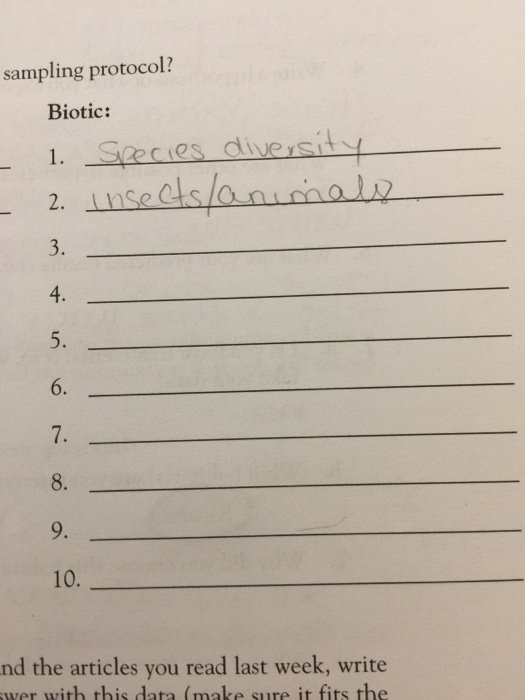 sampling protocol?
Biotic:
1. Species diversity
2. insects/animals
3.
4.
5.
6.
7.
8.
9.
10.
nd the articles you read last week, write
swer with this data (make sure it fits the